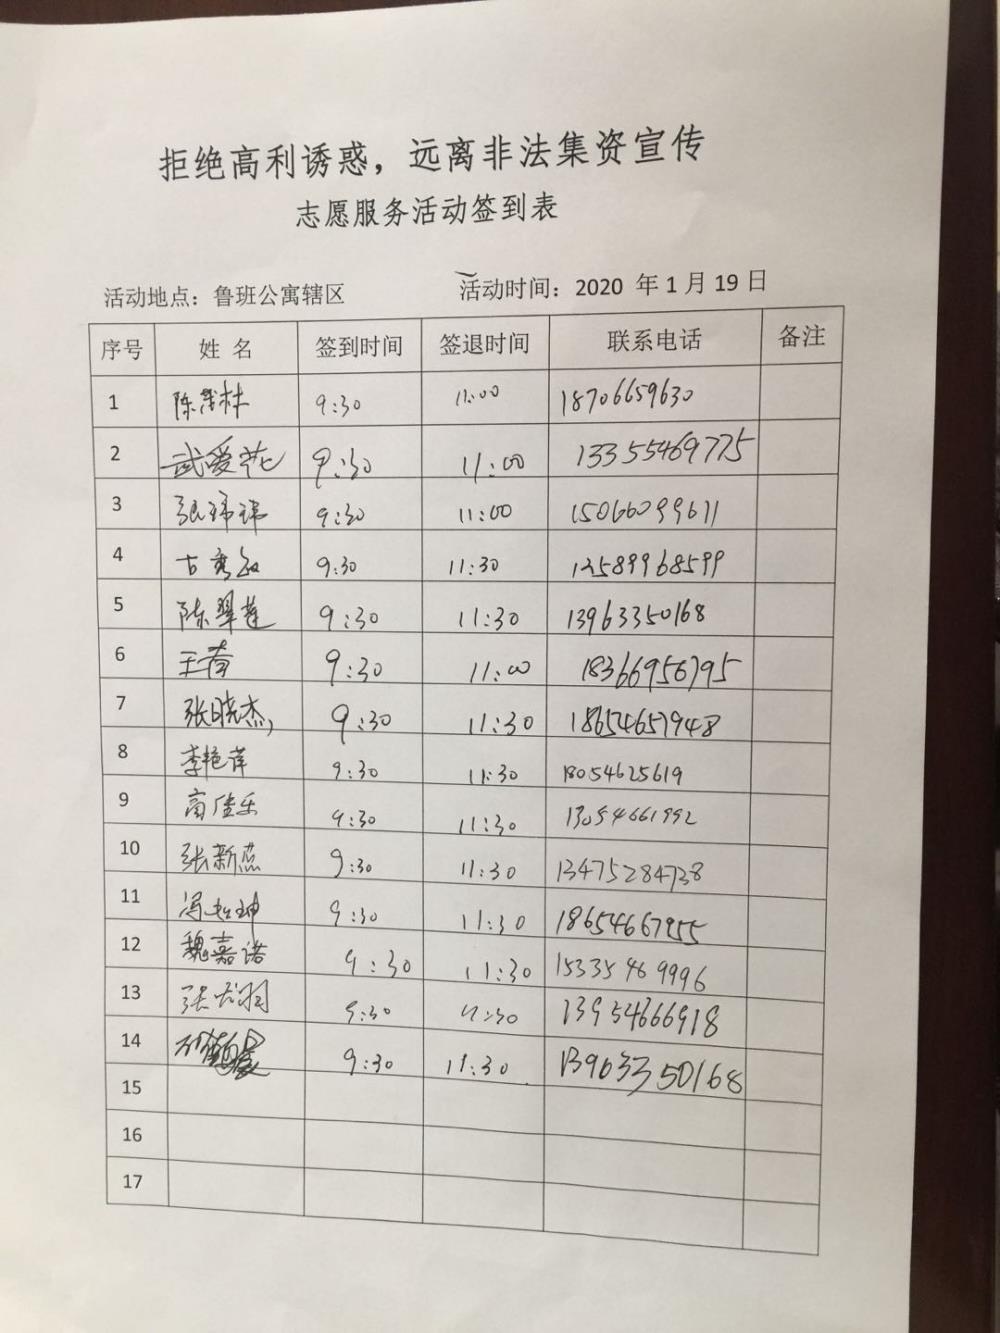 拒绝高利诱惑，远离非法集资宣传
志愿服务活动签到表
活动地点：鲁班公寓辖区 活动时间：2020 年1月19日
序号 姓名 签到时间 签退时间 联系电话 备注
1 9:30 11:00 18706659630
2 武爱花 9:30 11:00 13355469775
3 张玮玮 9:30 11:00 15066099611
4 古秀敏 9:30 11:30 13589968599
5 陈翠莲 9:30 11:30 13963350168
6 9:30 11:00 18366956795
7 张晓杰, 9:30 11:30 18654657948
8 李艳萍 9:30 11:30 18054625619
9 高佳乐 9:30 11:30 13054661992
10 张新燕 9:30 11:30 13475284738
11 9:30 11:30 18654667955
12 魏嘉诺 9:30 11:30 15335469996
13 9:30 11:30 13954666918
14 9:30 11:30 13963350168
15
16
17